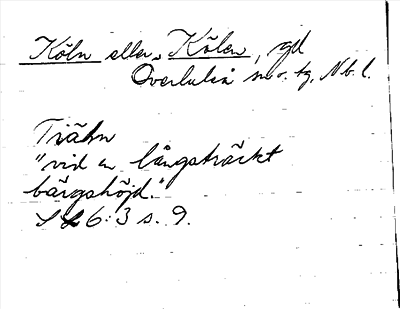 Köln eller Kölen, gd
Överluleå sn o. tg, Nb. l.
Trähn
"vid en långsträckt
bärgshöjd."
S L 6:3 s. 9.